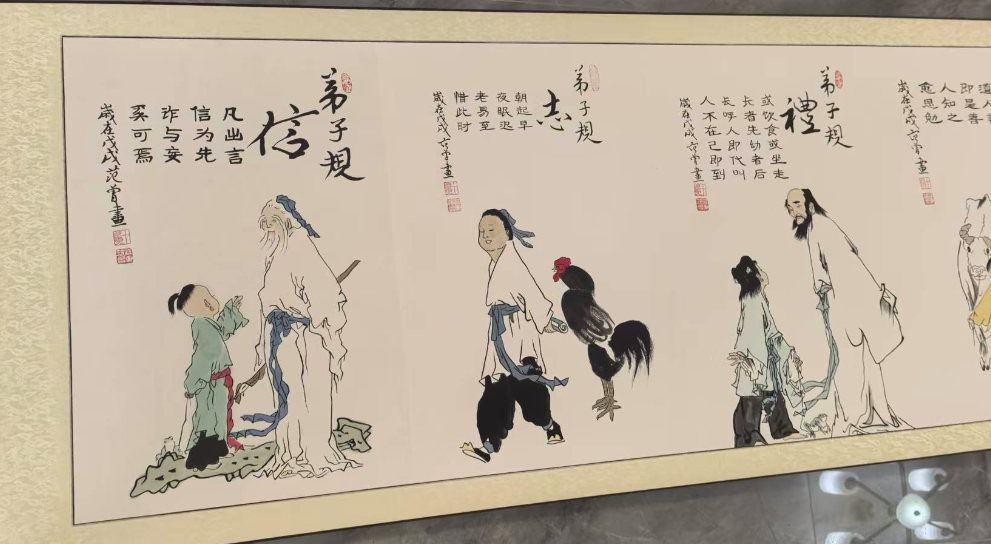 即是善
人知之
愈思勉
歲在戊戌范曾畫
弟子規
禮
或饮食或坐走
长者先幼者后
长呼人即代叫
人不在己即到
歲在戊戌范曾畫
弟子規
志
朝起早
夜眠迟
老易至
惜此时
歲在戊戌范曾畫
弟子規
信
凡出言
信为先
诈与妄
奚可焉
歲在戊戌范曾畫